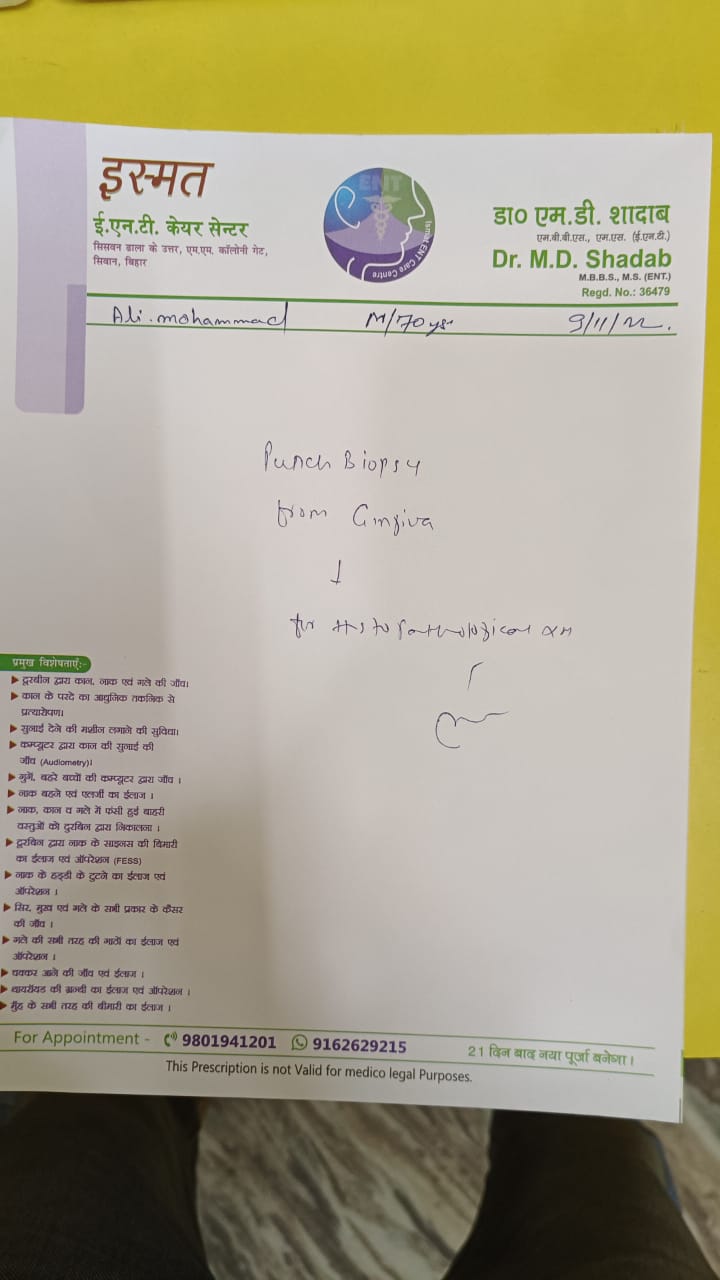 इस्मत
ई.एन.टी. केयर सेन्टर
सिसवन ढाला के उत्तर, एम.एम. कॉलोनी गेट,
सिवान, बिहार
ENT
Ismat ENT Care Centre
डा० एम.डी. शादाब
एम.बी.बी.एस., एम.एस. (ई.एन.टी.)
Dr. M.D. Shadab
M.B.B.S., M.S. (ENT.)
Regd. No.: 36479
Ali.mohammad M/70ys 9/11/22.
Punch Biopsy
from Gingiva
for Histopathological
प्रमुख विशेषताएँ:-
दूरबीन द्वारा कान, नाक एवं गले की जाँच।
कान के परदे का आधुनिक तकनिक से
प्रत्यारोपण।
सुनाई देने की मशीन लगाने की सुविधा।
कम्प्यूटर द्वारा कान की सुनाई की
जाँच (Audiometry)।
गुगें, बहरे बच्चों की कम्प्यूटर द्वारा जाँच ।
नाक बहने एवं एलर्जी का ईलाज ।
नाक, कान व गले में फंसी हुई बाहरी
वस्तुओं को दुरबिन द्वारा निकालना ।
दूरबिन द्वारा नाक के साइनस की बिमारी
का ईलाज एवं ऑपरेशन (FESS)
नाक के हड्डी के टुटने का ईलाज एवं
ऑपरेशन ।
सिर, मुख एवं गले के सभी प्रकार के कैंसर
की जाँच ।
गले की सभी तरह की गाठों का ईलाज एवं
ऑपरेशन ।
चक्कर आने की जाँच एवं ईलाज ।
थायरॉयड की ग्रन्थी का ईलाज एवं ऑपरेशन ।
मुँह के सभी तरह की बीमारी का ईलाज ।
For Appointment - 9801941201 9162629215
21 दिन बाद नया पूर्जा बनेगा।
This Prescription is not Valid for medico legal Purposes.